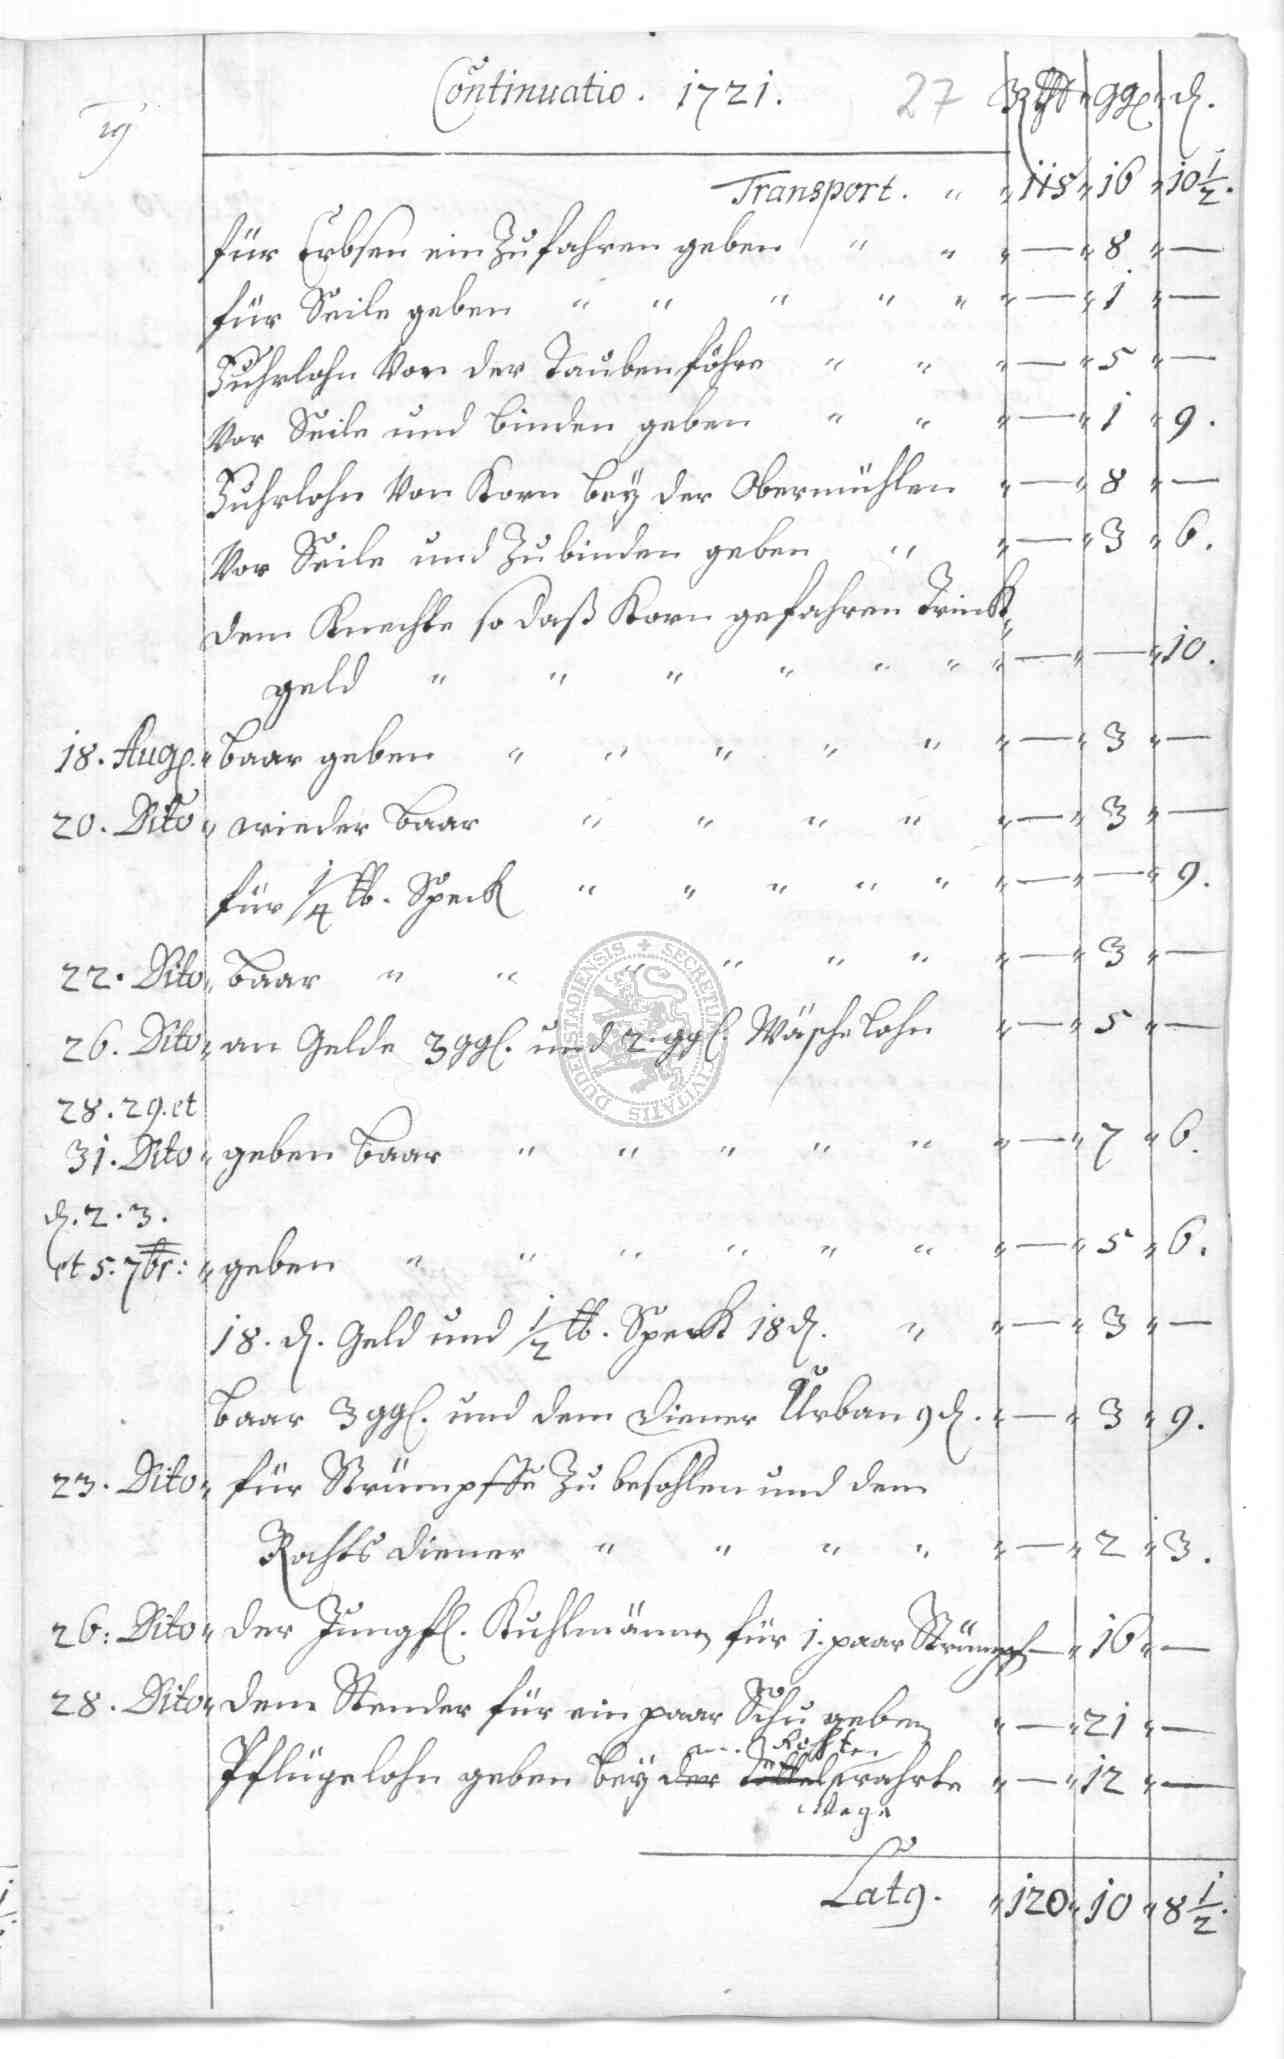 Continuatio. 1721. 27 Rthl ggl. d.
19
Transport. " " 115 " 16 " 10 1/2.
für Erbsen ein Zu fahren geben " " " — " 8 " —
für Seile geben " " " " " " — " 1 " —
Fuhrlohn von der Taubenföhre " " " — " 5 " —
Vor Seile und binden geben " " " — " 1 " 9.
Fuhrlohn von Korn bey der Obermühlen " — " 8 " —
Vor Seile und Zu binden geben " " — " 3 " 6.
dem Knechte so daß Korn gefahren Trinck
geld " " " " " " " — " — " 10.
18. Aug. " baar geben " " " " " " — " 3 " —
20. Dito " wieder baar " " " " " — " 3 " —
für 1/4 lb. Speck " " " " " " — " — " 9.
22. Dito " baar " " " " " " " — " 3 " —
26. Dito " an Gelde 3 ggl. und 2. ggl. Wäsche lohn " — " 5 " —
28. 29. et
31. Dito " geben baar " " " " " " — " 7 " 6.
d. 2. 3.
et 5. 7br: " geben " " " " " " " — " 5 " 6.
18. d. Geld und 1/2 lb. Speck 18 d. " " — " 3 " —
baar 3 ggl. und dem diener Urban 9 d. " — " 3 " 9.
23. Dito " für Strümpffe Zu besohlen und dem
Rahts diener " " " " " — " 2 " 3.
26: Dito " der Jungfl. Kuhlmännn für 1. paar Strümpf — " 16 " —
28. Dito " dem Stender für ein paar Schu geben " — " 21 " —
Rohten
Pflügelohn geben bey der wahrte " — " 12 " —
Wege
Lat9. " 120 " 10 " 8 1/2.
SECRETUM CIVITATIS DUDERSTADIENSIS